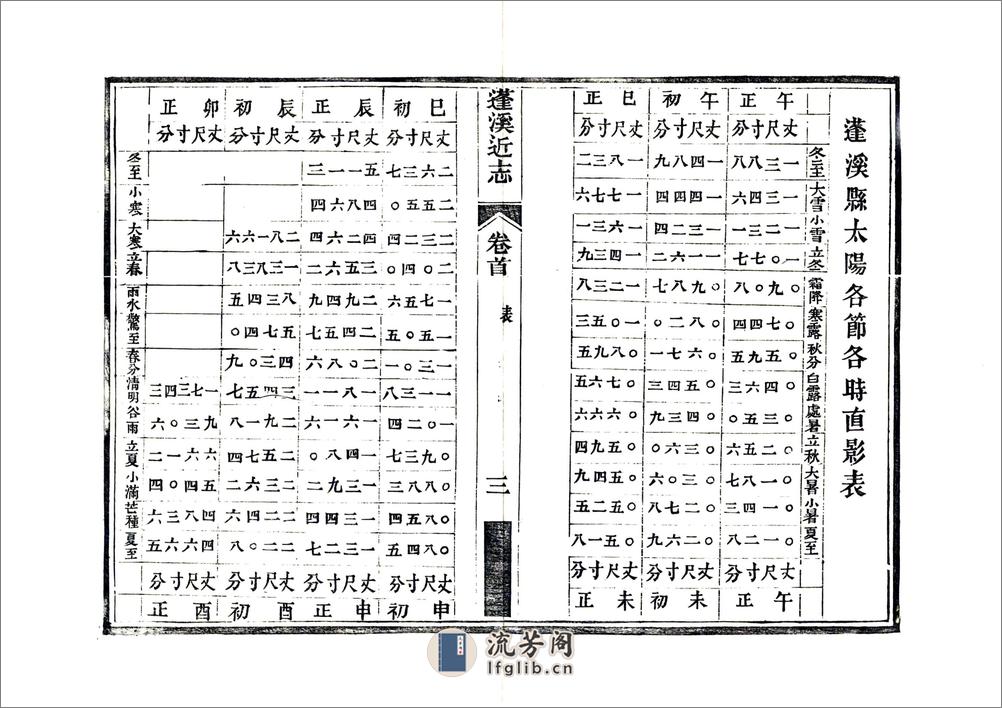 蓬溪縣太陽各節各時直影表
冬至 大雪 小雪 立冬 霜降 寒露 秋分 白露 處暑 立秋 大暑 小暑 夏至
午正
丈尺寸分
一三八八
一三六四
一三二一
一〇七七
〇九〇八
〇七四四
〇五九五
〇四六三
〇三五〇
〇二五六
〇一八七
〇一四三
〇一二八
丈尺寸分
午正
午初
丈尺寸分
一四八九
一四四七
一三二四
一一六二
〇九八七
〇八二〇
〇六七五
〇五四三
〇四三九
〇三六〇
〇三〇二
〇二六四
〇二六九
丈尺寸分
未初
巳正
丈尺寸分
一八三二
一七七六
一六三一
一四三九
一二三八
一〇五三
〇九五八
〇七六五
〇六六六
〇五九四
〇五四九
〇五二五
〇五一八
丈尺寸分
未正
蓬溪近志
卷首
表
三
巳初
丈尺寸分
二六三七
二五五〇
二三二四
二〇四〇
一七五六
一五〇五
一三〇一
一一三八
一〇二四
〇九三七
〇八八三
〇八五四
〇八四五
丈尺寸分
申初
辰正
丈尺寸分
五一一三
四八六四
四二六四
三五六二
二九四九
二四五七
二〇八六
一八一一
一六一六
一四八〇
一三九二
一三四四
一三二七
丈尺寸分
申正
辰初
丈尺寸分
二八一六六
一三八三八
八三四五
五七四〇
四三〇九
三四五七
二九一八
二五七四
二三六二
二二四六
二二〇八
丈尺寸分
酉初
卯正
丈尺寸分
一七三四三
九三〇六
六六一二
五六〇四
四八三六
四六六五
丈尺寸分
酉正
冬至 小寒 大寒 立春 雨水 驚至 春分 清明 谷雨 立夏 小滿 芒種 夏至
流芳阁
lfglib.cn